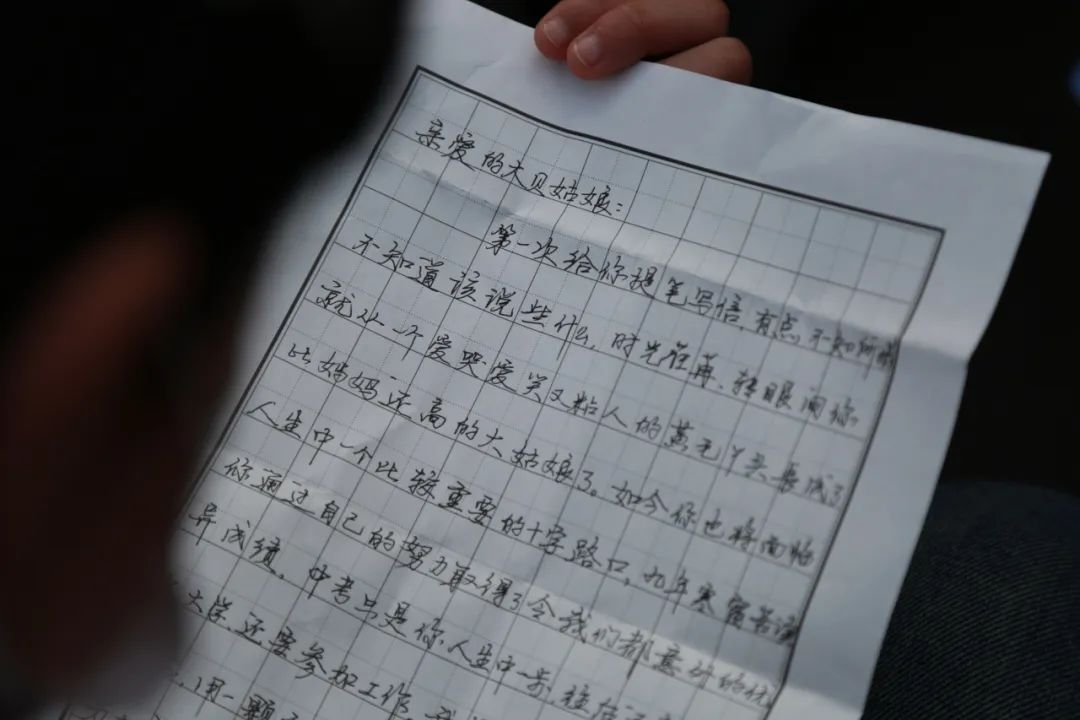 亲爱的大贝姑娘:
第一次给你提笔写信,有点不知所措
不知道该说些什么,时光荏苒,转眼间你
就从一个爱哭爱笑又粘人的黄毛丫头长成了
比妈妈还高的大姑娘了。如今你也将面临
人生中一个比较重要的十字路口,九年寒窗苦读
你通过自己的努力取得了令我们都意外的优
异成绩,中考只是你人生中一步,往后还
大学还要参加工作,
用一颗